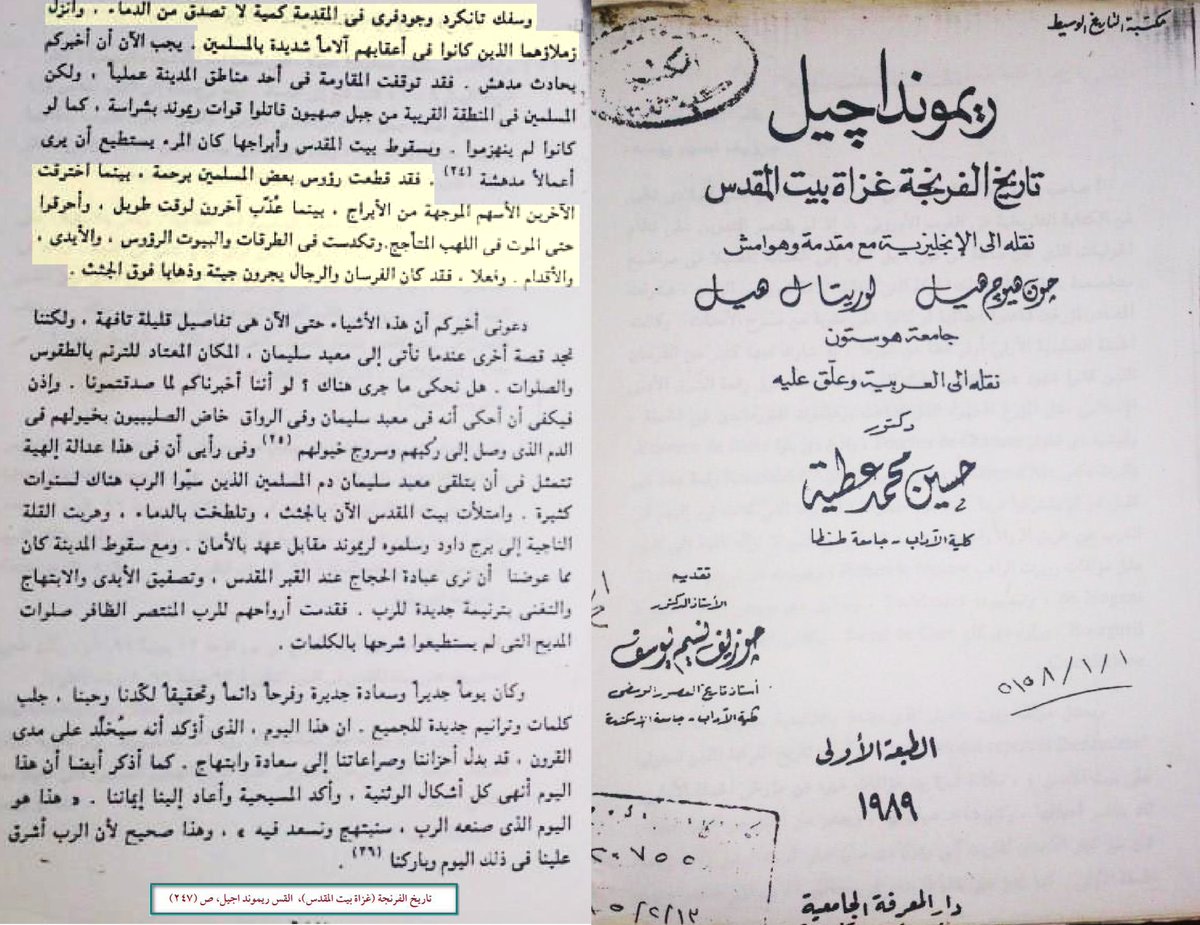 مكتبة التاريخ الوسيط
ريمونداچيل
تاريخ الفرنجة غزاة بيت المقدس
نقله الى الإنجليزية مع مقدمة وهوامش
جون هيوج هيل لوريتا ل هيل
جامعة هوستون
نقله الى العربية وعلق عليه
دكتور
حسين محمد عطية
كلية الآداب - جامعة طنطا
تقديم
الأستاذ الدكتور
جوزيف نسيم يوسف
أستاذ تاريخ العصور الوسطى
كلية الآداب - جامعة الإسكندرية
٥١٥٨/١/١
الطبعة الأولى
١٩٨٩
دار المعرفة الجامعية
وسفك تانكرد وجودفرى فى المقدمة كمية لا تصدق من الدماء ، وأنزل
زملاؤهما الذين كانوا فى أعقابهم آلاماً شديدة بالمسلمين . يجب الآن أن أخبركم
بحادث مدهش . فقد توقفت المقاومة فى أحد مناطق المدينة عملياً ، ولكن
المسلمين فى المنطقة القريبة من جبل صهيون قاتلوا قوات ريموند بشراسة ، كما لو
كانوا لم ينهزموا . ويسقوط بيت المقدس وأبراجها كان المرء يستطيع أن يرى
أعمالاً مدهشة (٢٤) . فقد قطعت رؤوس بعض المسلمين برحمة ، بينما اخترقت
الآخرين الأسهم الموجهة من الأبراج ، بينما عُذّب آخرون لوقت طويل ، وأحرقوا
حتى الموت فى اللهب المتأجج.وتكدست فى الطرقات والبيوت الرؤوس ، والأيدى ،
والأقدام . وفعلا ، فقد كان الفرسان والرجال يجرون جيئة وذهابا فوق الجثث .
دعونى أخبركم أن هذه الأشياء حتى الآن هى تفاصيل قليلة تافهة ، ولكننا
نجد قصة أخرى عندما نأتى إلى معبد سليمان ، المكان المعتاد للترنم بالطقوس
والصلوات . هل نحكى ما جرى هناك ؟ لو أننا أخبرناكم لما صدقتمونا . وإذن
فيكفى أن أحكى أنه فى معبد سليمان وفى الرواق خاض الصليبيون بخيولهم فى
الدم الذى وصل إلى رُكبهم وسروج خيولهم (٢٥) وفى رأيى أن فى هذا عدالة إلهية
تتمثل فى أن يتلقى معبد سليمان دم المسلمين الذين سبّوا الرب هناك لسنوات
كثيرة . وامتلأت بيت المقدس الآن بالجثث ، وتلطخت بالدماء ، وهربت القلة
الناجية إلى برج داود وسلموه لريموند مقابل عهد بالأمان . ومع سقوط المدينة كان
مما عوضنا أن نرى عبادة الحجاج عند القبر المقدس ، وتصفيق الأيدى والابتهاج
والتغنى بترنيمة جديدة للرب . فقدمت أرواحهم للرب المنتصر الظافر صلوات
المديح التى لم يستطيعوا شرحها بالكلمات .
وكان يوماً جديراً وسعادة جديرة وفرحاً دائماً وتحقيقاً لكّدنا وحبنا ، جلب
كلمات وترانيم جديدة للجميع . ان هذا اليوم ، الذى أؤكد أنه سيُخلّد على مدى
القرون ، قد بدل أحزاننا وصراعاتنا إلى سعادة وابتهاج . كما أذكر أيضا أن هذا
اليوم أنهى كل أشكال الوثنية ، وأكد المسيحية وأعاد إلينا إيماننا . « هذا هو
اليوم الذى صنعه الرب ، سنبتهج ونسعد فيه » ، وهذا صحيح لأن الرب أشرق
علينا فى ذلك اليوم وباركنا (٢٦) .
تاريخ الفرنجة (غزاة بيت المقدس)، القس ريموند اجيل، ص (٢٤٧)